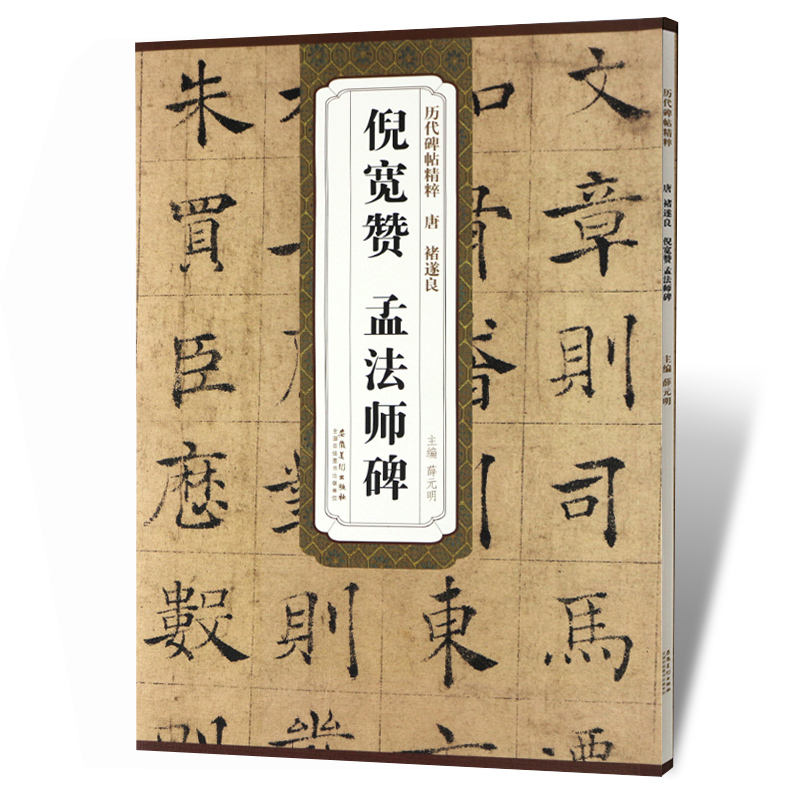 历代碑帖精粹 唐 褚遂良
倪宽赞 孟法师碑
主编 薛元明
安徽美术出版社
全国百佳图书出版单位
文章則司馬
東
則
朱買臣歷數
历代碑帖精粹 唐 褚遂良 倪宽赞 孟法师碑 主编 薛元明 安徽美术出版社